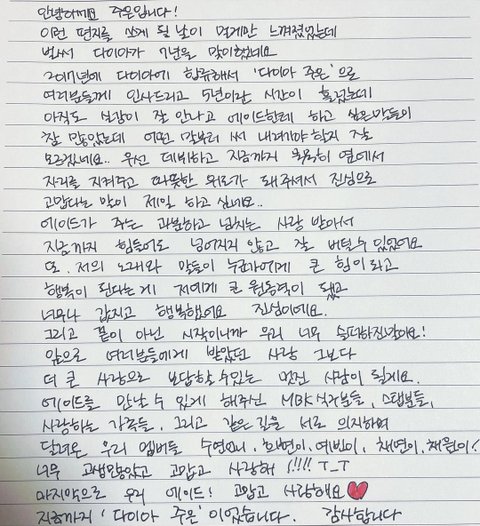 안녕하세요 주은입니다!
이런 편지를 쓰게 될 날이 멀게만 느껴졌었는데
벌써 다이아가 7년을 맞이했네요
2017년에 다이아에 합류해서 '다이아 주은'으로
여러분들께 인사드리고 5년이란 시간이 흘렀는데
아직도 실감이 잘 안나고 에이드한테 하고 싶은말들이
참 많았는데 어떤 말부터 써 내려가야 할지 잘
모르겠네요.. 우선 데뷔하고 지금까지 묵묵히 옆에서
자리를 지켜주고 따뜻한 위로가 돼주셔서 진심으로
고맙다는 말이 제일 하고 싶네요..
에이드가 주는 과분하고 넘치는 사랑 받아서
지금까지 힘들어도 넘어지지 않고 잘 버틸 수 있었어요
또, 저의 노래와 말들이 누군가에게 큰 힘이라고
행복이 된다는 게 저에게 큰 원동력이 됐고
너무나 값지고 행복했어요 진심이에요.
그리고 끝이 아닌 시작이니까 우리 너무 슬퍼하진말아요!
앞으로 여러분들에게 받았던 사랑 그보다
더 큰 사랑으로 보답할 수있는 멋진 사람이 될게요.
에이드를 만날 수 있게 해주신 MBK식구분들, 스탭분들,
사랑하는 가족들, 그리고 같은 길을 서로 의지하며
달려온 우리 멤버들 수연언니, 희현이, 예빈이, 채연이, 채원이!
너무 고생많았고 고맙고 사랑해 !!!! T_T
마지막으로 우리 에이드! 고맙고 사랑해요
지금까지 '다이아 주은' 이었습니다. 감사합니다